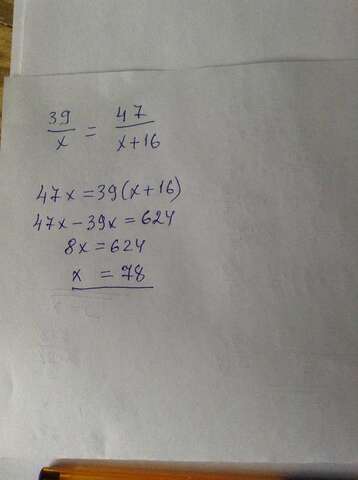 39/x = 47/x+16
47x=39(x+16)
47x-39x=624
8x=624
x = 78